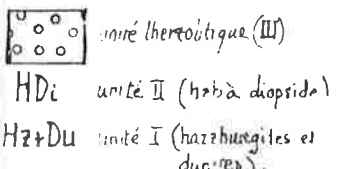 unité lherzolitique (III)
HDi unité II (hzb à diopside)
Hz+Du unité I (harzburgites et
dunites).